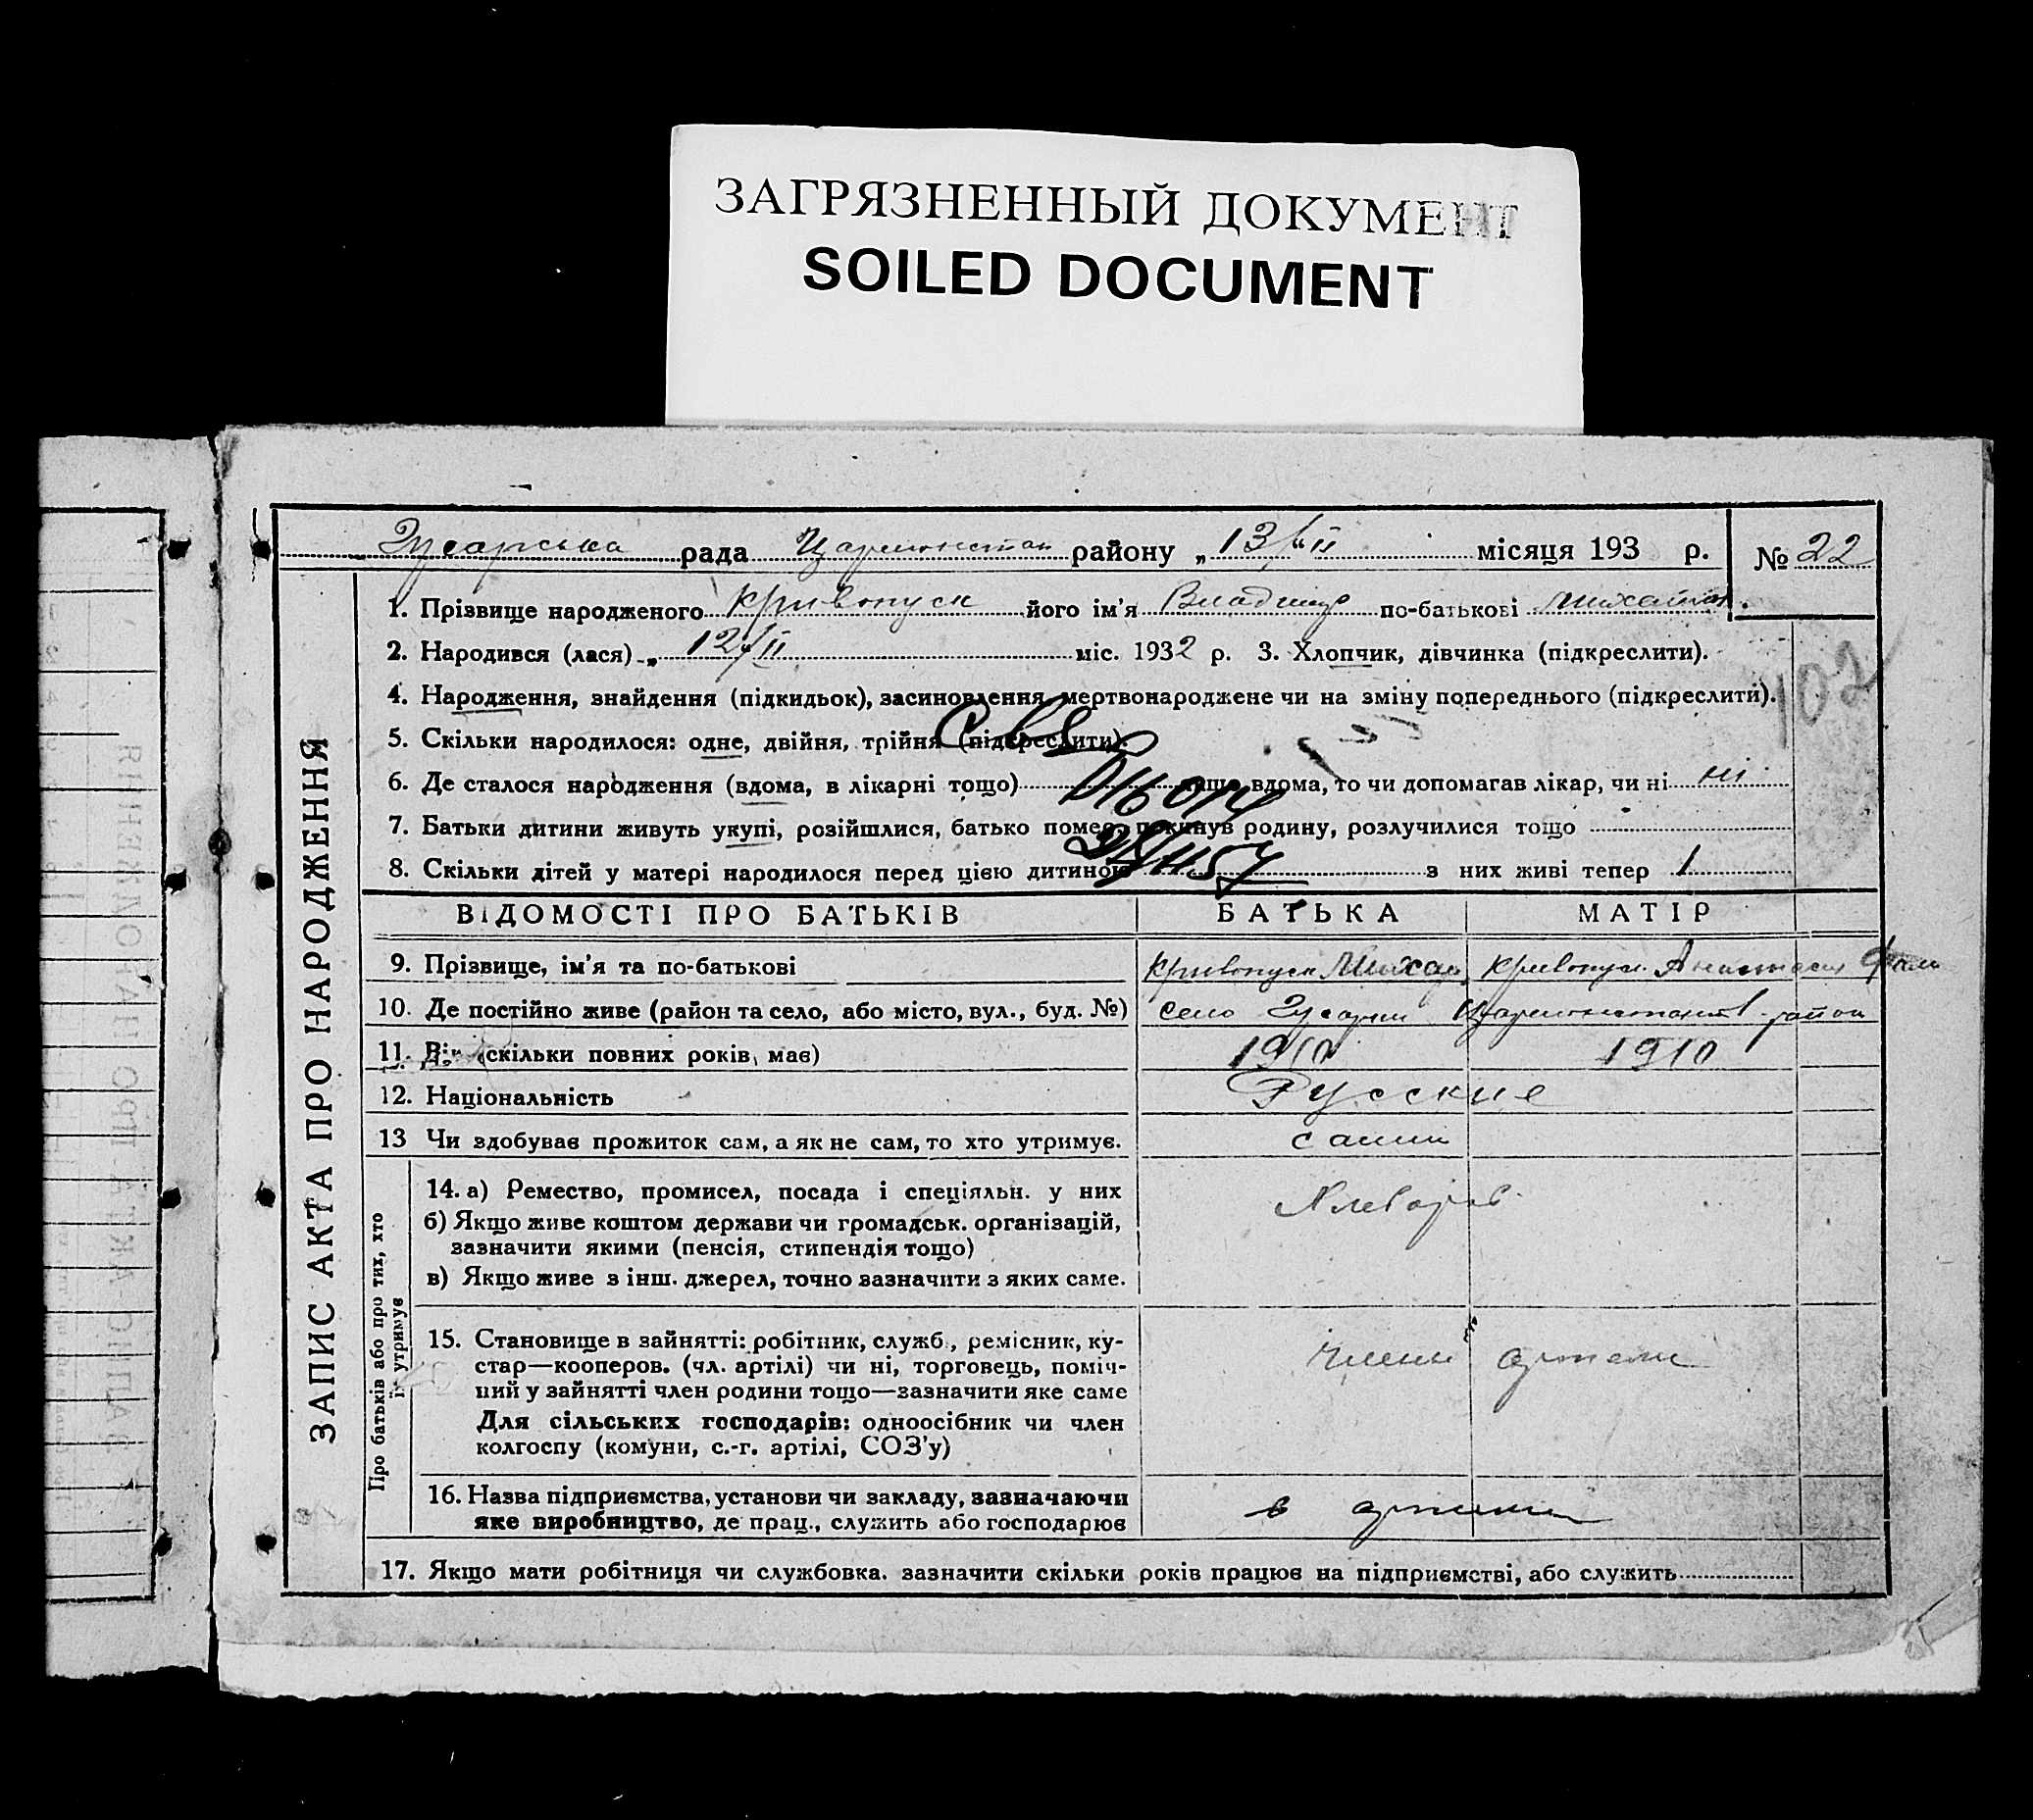 ЗАГРЯЗНЕННЫЙ ДОКУМЕНТ
SOILED DOCUMENT
ЗАПИС АКТА ПРО НАРОДЖЕННЯ
рада району „13/II місяця 193 р. № 22
1. Прізвище народженого Кривопуск його ім'я Владимир по-батькові
2. Народився (лася) „12/II міс. 1932 р. 3. Хлопчик, дівчинка (підкреслити).
102
4. Народження, знайдення (підкидьок), засиновлення, мертвонароджене чи на зміну попереднього (підкреслити).
5. Скільки народилося: одне, двійня, трійня (підкреслити).
6. Де сталося народження (вдома, в лікарні тощо) якщо вдома, то чи допомагав лікар, чи ні ні
7. Батьки дитини живуть укупі, розійшлися, батько помер, покинув родину, розлучилися тощо
8. Скільки дітей у матері народилося перед цією дитиною з них живі тепер 1
ВІДОМОСТІ ПРО БАТЬКІВ БАТЬКА МАТІР
9. Прізвище, ім'я та по-батькові Кривопуск Михаил Кривопуск
10. Де постійно живе (район та село, або місто, вул., буд. №) село район
11. Вік (скільки повних років має) 1910 1910
12. Національність Русские
13 Чи здобуває прожиток сам, а як не сам, то хто утримує. сами
Про батьків або про тих, хто їх утримує
14. а) Ремество, промисел, посада і спеціяльн. у них
б) Якщо живе коштом держави чи громадськ. організацій,
зазначити якими (пенсія, стипендія тощо)
в) Якщо живе з інш. джерел, точно зазначити з яких саме.
15. Становище в зайнятті: робітник, служб., ремісник, ку-
стар—кооперов. (чл. артілі) чи ні, торговець, поміч-
ний у зайнятті член родини тощо—зазначити яке саме
члены артели
Для сільських господарів: одноосібник чи член
колгоспу (комуни, с.-г. артілі, СОЗ'у)
16. Назва підприємства, установи чи закладу, зазначаючи
яке виробництво, де прац., служить або господарює
в артели
17. Якщо мати робітниця чи службовка. зазначити скільки років працює на підприємстві, або служить